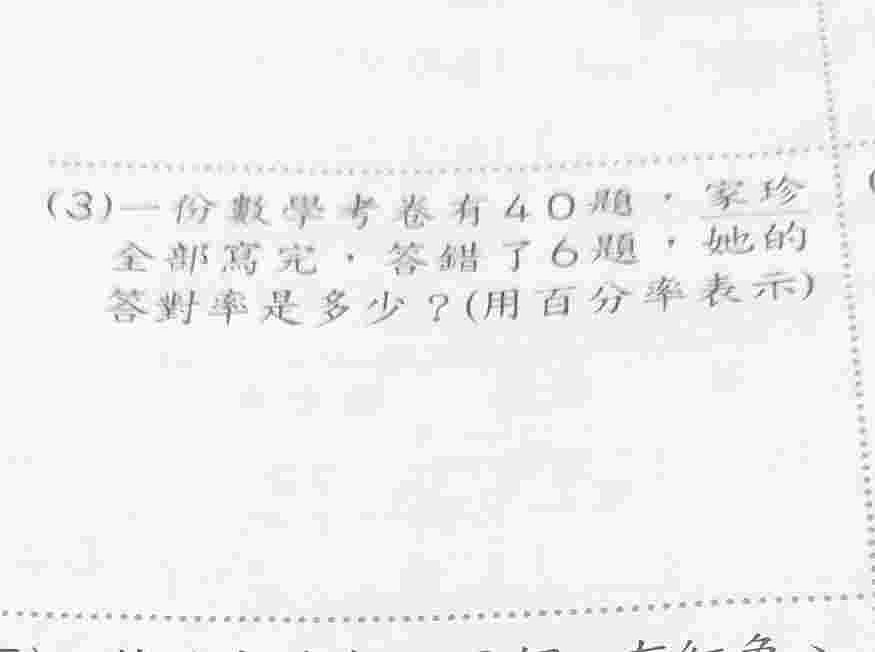 (3)一份數學考卷有40題，家珍
全部寫完，答錯了6題，她的
答對率是多少？(用百分率表示)